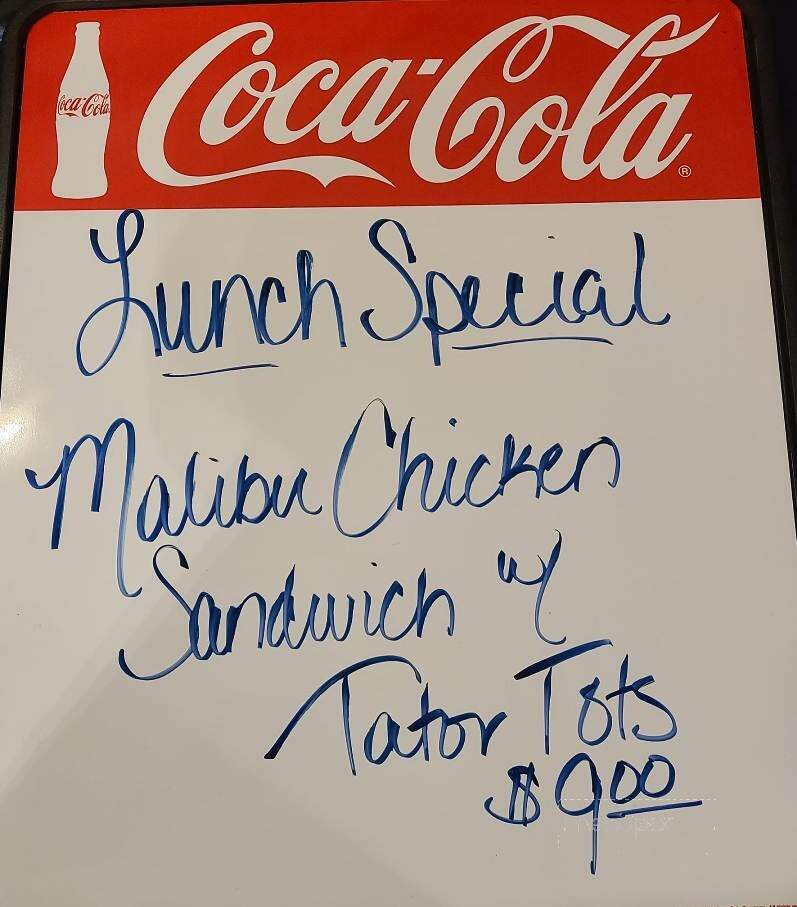 Coca-Cola
Coca-Cola®
Lunch Special
Malibu Chicken
Sandwich w/
Tator Tots
$9.00